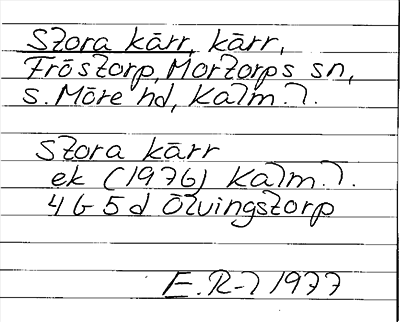 Stora kärr, kärr,
Fröstorp, Mortorps sn,
S. Möre hd, Kalm. l.
Stora kärr
ek (1976) Kalm. l.
4G 5d Ölvingstorp
E. R-l 1977